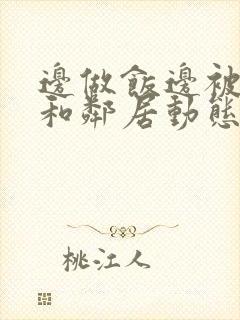 邊做飯邊被
和鄰居動態
桃江人